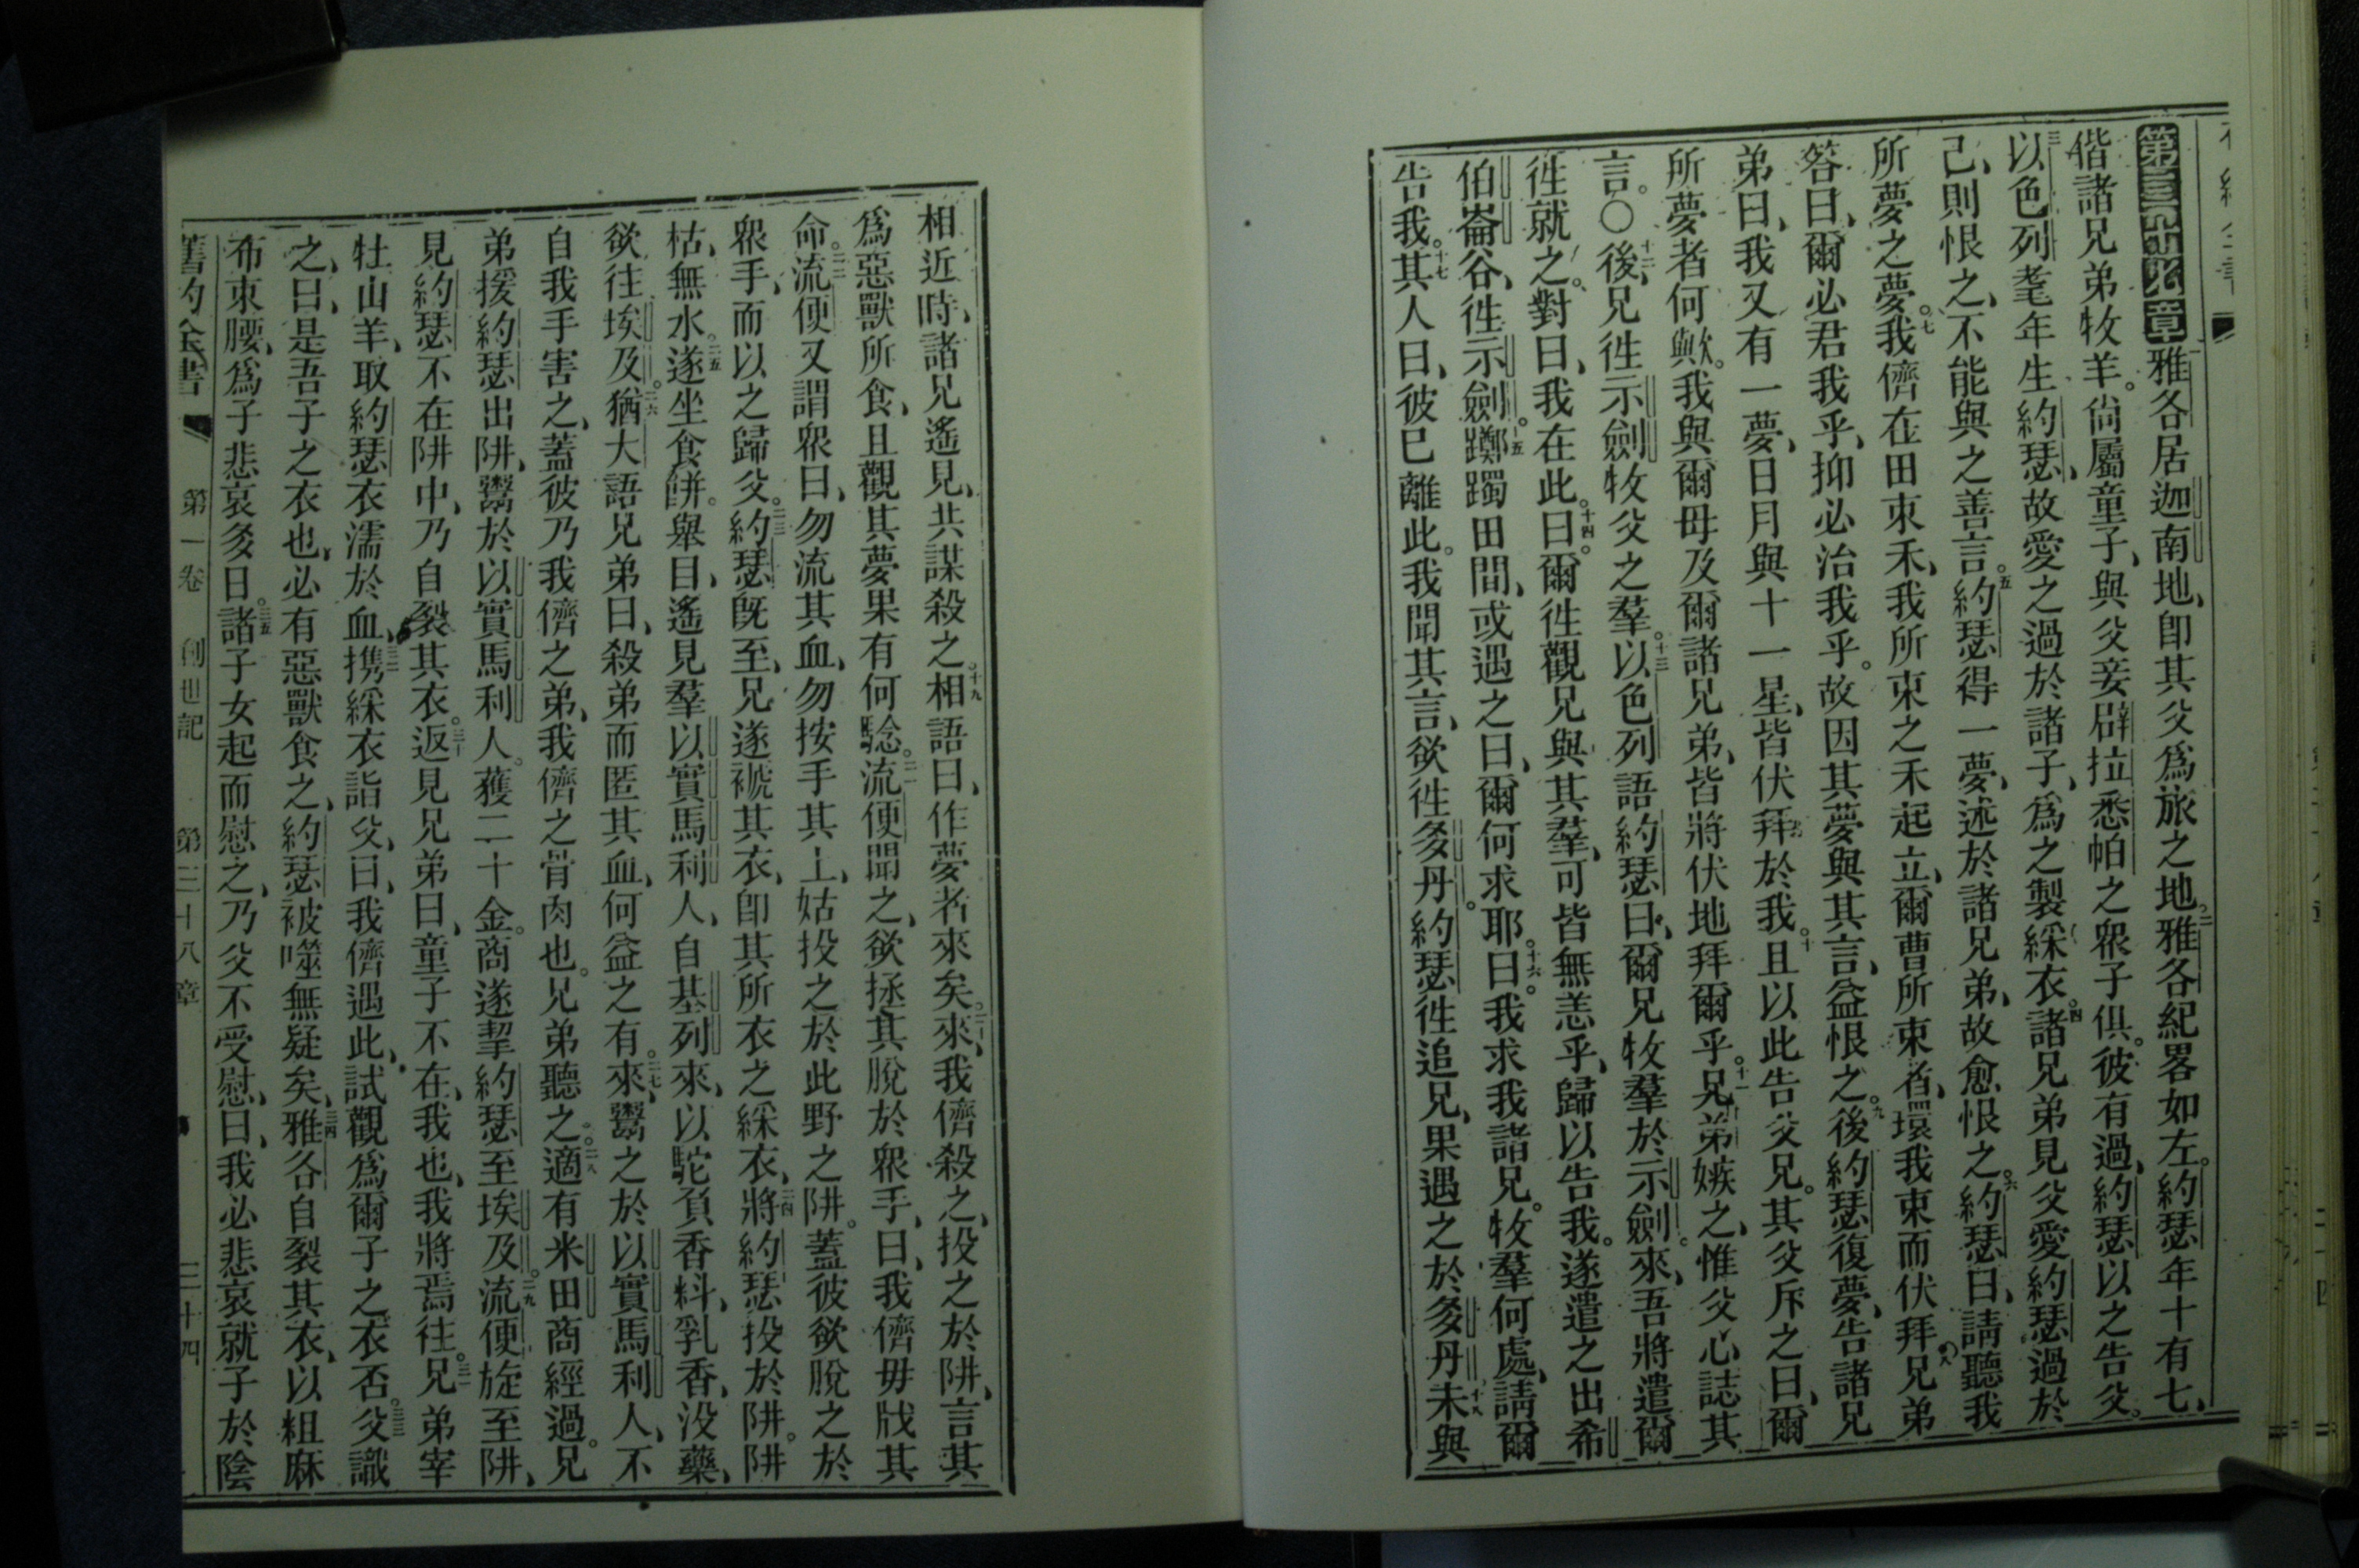 第三十七章雅各居迦南地、卽其父爲旅之地。二雅各紀畧如左。約瑟年十有七、
偕諸兄弟牧羊。尙屬童子、與父妾辟拉悉帕之衆子俱。彼有過、約瑟以之告父。
三以色列耄年生約瑟、故愛之過於諸子、爲之製綵衣。四諸兄弟見父愛約瑟過於
己、則恨之、不能與之善言。五約瑟得一夢、述於諸兄弟、故愈恨之。六約瑟曰、請聽我
所夢之夢。七我儕在田束禾、我所束之禾起立、爾曹所束者、環我束而伏拜。八兄弟
答曰、爾必君我乎、抑必治我乎。故因其夢與其言、益恨之。九後約瑟復夢、告諸兄
弟曰、我又有一夢、日月與十一星、皆伏拜於我。十且以此告父兄。其父斥之曰、爾
所夢者何歟。我與爾母及爾諸兄弟、皆將伏地拜爾乎。十一兄弟嫉之、惟父心誌其
言。〇十二後、兄徃示劍牧父之羣。十三以色列語約瑟曰、爾兄牧羣於示劍。來、吾將遣爾
徃就之。對曰、我在此。十四曰。爾徃觀兄與其羣、可皆無恙乎、歸以告我。遂遣之出希
伯崙谷、徃示劍。十五躑躅田間、或遇之曰、爾何求耶。十六曰。我求我諸兄。牧羣何處、請爾
告我。十七其人曰、彼已離此。我聞其言、欲徃多丹。約瑟徃追兄、果遇之於多丹。十八未與
相近時、諸兄遙見、共謀殺之。十九相語曰、作夢者來矣。二十來、我儕殺之、投之於阱、言其
爲惡獸所食、且觀其夢果有何騐。二一流便聞之、欲拯其脫於衆手、曰、我儕毋戕其
命。二二流便又謂衆曰、勿流其血、勿按手其上、姑投之於此野之阱。蓋彼欲脫之於
衆手、而以之歸父。二三約瑟旣至、兄遂褫其衣、卽其所衣之綵衣、二四將約瑟投於阱。阱
枯、無水。二五遂坐食餅。舉目、遙見羣以實馬利人、自基列來、以駝負香料、乳香、沒藥、
欲往埃及。二六猶大語兄弟曰、殺弟而匿其血、何益之有。二七來、鬻之於以實馬利人、不
自我手害之、蓋彼乃我儕之弟、我儕之骨肉也。兄弟聽之。二八適有米田商經過。兄
弟援約瑟出阱、鬻於以實馬利人。獲二十金。商遂挈約瑟至埃及。二九流便旋至阱、
見約瑟不在阱中、乃自裂其衣。三十返見兄弟曰、童子不在、我也、我將焉往。三一兄弟宰
牡山羊、取約瑟衣濡於血、三二携綵衣詣父、曰、我儕遇此、試觀爲爾子之衣否。三三父識
之、曰、是吾子之衣也、必有惡獸食之、約瑟被噬無疑矣、三四雅各自裂其衣、以粗麻
布束腰、爲子悲哀多日。三五諸子女起而慰之、乃父不受慰、曰、我必悲哀就子於陰
舊約全書 第一卷 創世記 第三十八章 三十四